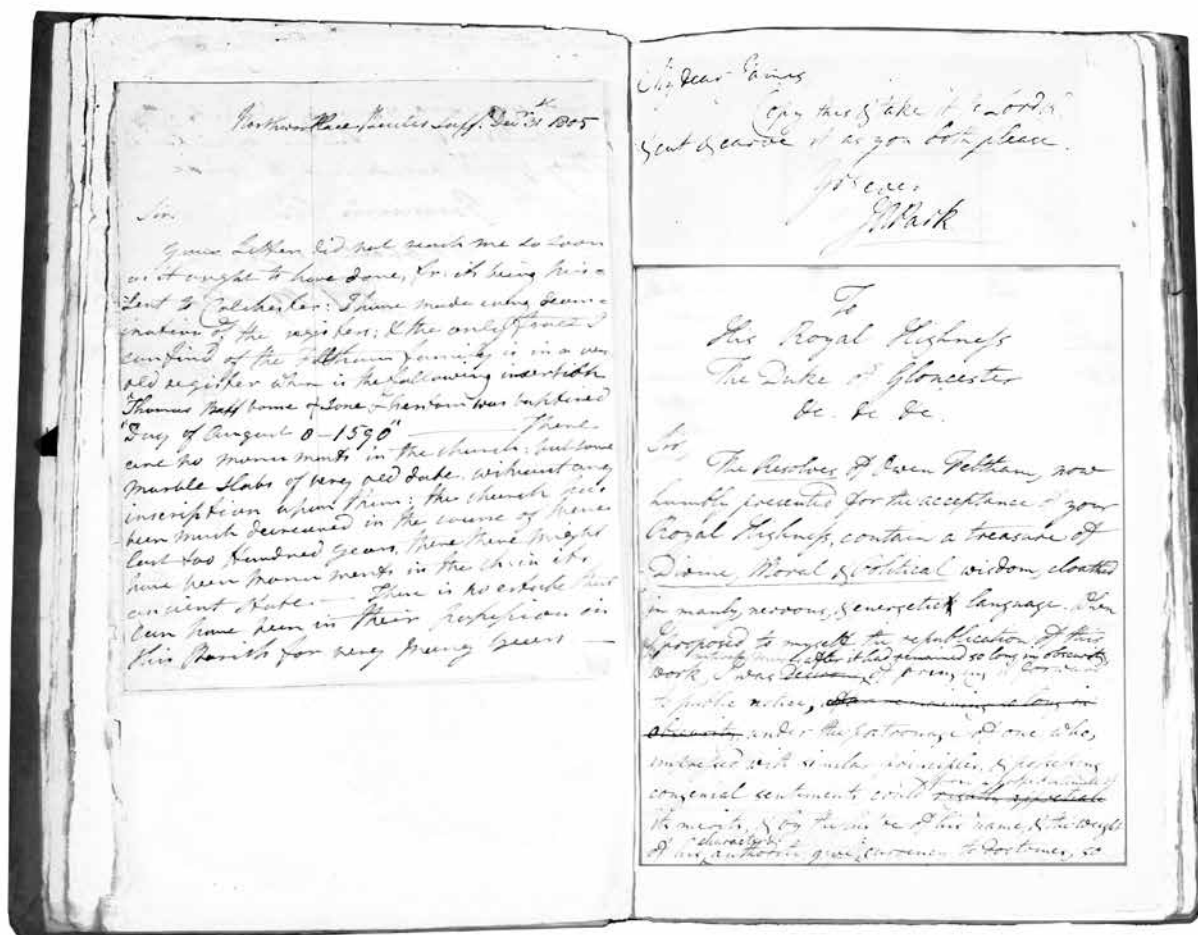 Place Suff. Decr 31st 1805
Sir
Your Letter did not reach me so soon
as it ought to have done, for its being mis=
sent to Colchester: I have made every exam=
ination of the registers; & the only trace I
can find of the Feltham family is in a very
old register where is the following insertion
"Thomas was baptized
"Day of August 8 - 1590" There
are no monuments in the church; but some
marble Slabs of very old date, without any
inscription upon them: the church has
been much decreased in the course of these
last two Hundred Years, there might
have been monuments in the ch: in its
ancient State. There is no estate that
can have been in their possession in
this Parish for very many years
My dear
Copy this & take it to Lord
& cut & carve it as you both please.
Yrs ever
JA Park
To
His Royal Highness
The Duke of Gloucester
&c. &c. &c.
Sir,
The Resolves of Owen Feltham, now
humbly presented for the acceptance of your
Royal Highness, contain a treasure of
Divine, Moral, & Political wisdom, cloathed
in manly, nervous, & energetick language. When
I proposed to myself the republication of this
after it had remained so long in obscurity,
work, I was of bringing it forward
to public notice, after remaining so long in
obscurity, under the patronage of one who,
impressed with similar principles, & possessing
congenial sentiments could
its merits, & by the of his name, & the weight
character &
of his authority, give currency to doctrines, so